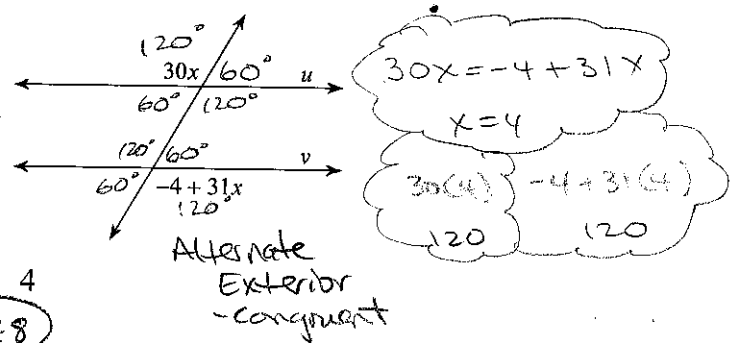 120°
30x 60° u
60° 120°
120° 60° v
60° -4 + 31x
120°
30x = -4 + 31x
x = 4
30(4) -4 + 31(4)
120 120
Alternate
Exterior
-congruent
4
8